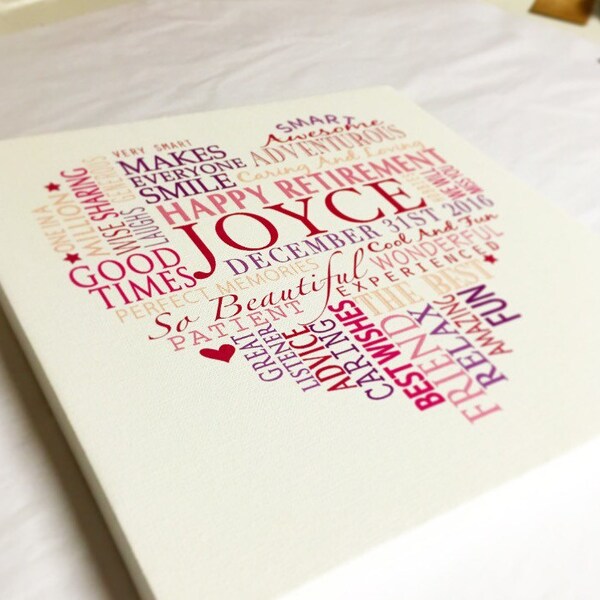 VERY SMART
SMART
Awesome
MAKES
EVERYONE
SMILE
ADVENTUROUS
Caring And Loving
HAPPY RETIREMENT
JOYCE
DECEMBER 31ST 2016
ONE IN A
MILLION
WISE SHARING
LAUGHS
WE WILL
MISS YOU
GOOD
TIMES
Cool And Fun
WONDERFUL
EXPERIENCED
PERFECT MEMORIES
So Beautiful
PATIENT
THE BEST
GREAT
LISTENER
ADVICE
CARING
BEST WISHES
FRIEND
RELAX
AMAZING
FUN